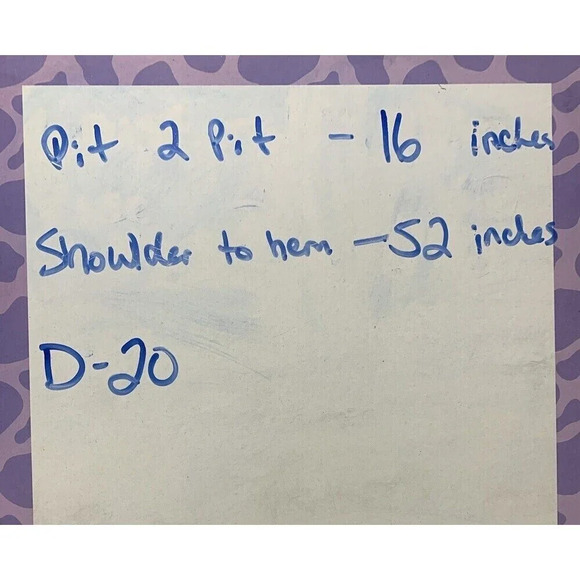 Pit 2 Pit - 16 inches
Shoulder to hem - 52 inches
D-20